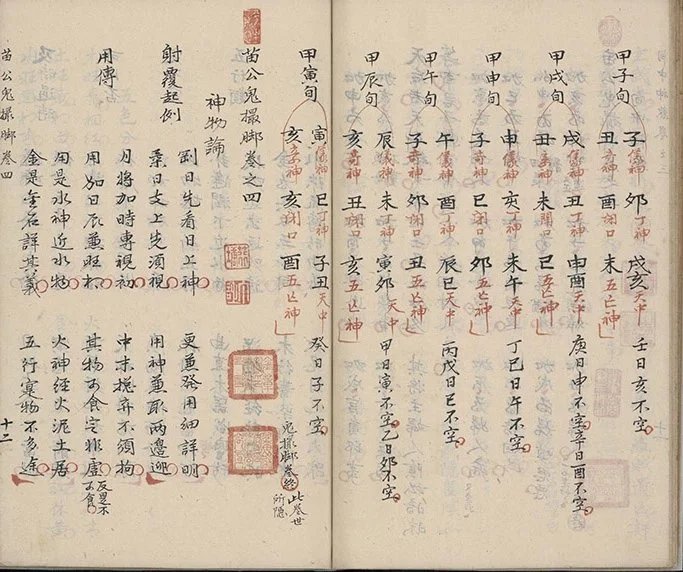 甲子旬 子儀神 卯丁神 戌亥天中 壬日亥不空
丑奇神 酉閉口 未五亡神
甲戌旬 戌儀神 丑丁神 申酉天中 庚日申不空辛日酉不空
丑奇神 未閉口 巳五亡神
甲申旬 申儀神 亥丁神 未午天中 丁巳日午不空
子奇神 巳閉口 卯五亡神
甲午旬 午儀神 酉丁神 辰巳天中 丙戊日巳不空
子奇神 卯閉口 丑五亡神
甲辰旬 辰儀神 未丁神 寅卯天中 甲日寅不空乙日卯不空
亥奇神 丑閉口 亥五亡神
甲寅旬 寅儀神 巳丁神 子丑天中 癸日子不空
亥奇神 亥閉口 酉五亡神
鬼撮脚卷終 此卷世所隱
苗公鬼撮脚卷之四
神物論
射覆起例 剛日先看日上神 更兼發用細詳明
柔日支上先須視 用神兼取兩邊迎
月將加時專視初 中末弃不須拘
用傳 用加日辰兼旺相 其物可食定非虛 反是不可食
用是水神近水物 火神經火泥土居
金是金石詳其義 五行定物不多途
苗公鬼撮脚卷四 十二